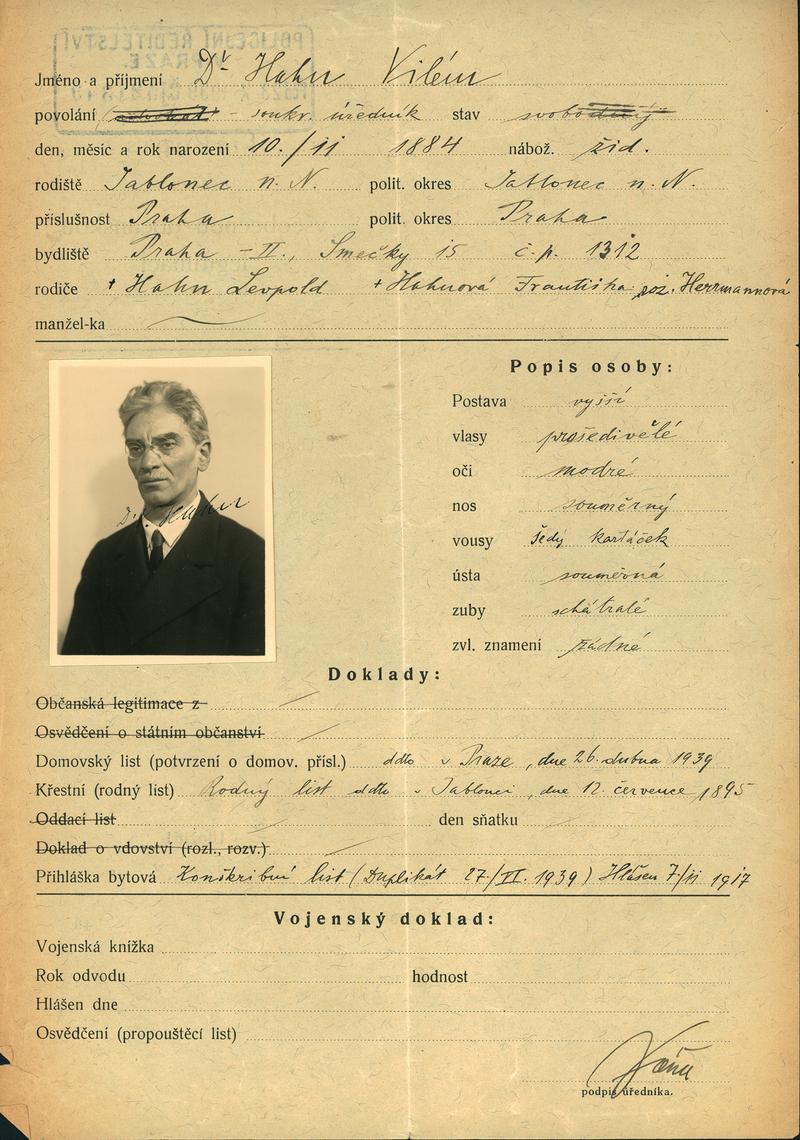 POLICEJNÍ ŘEDITELSTVÍ
PRAZE.
Jméno a příjmení Dr Hahn Vilém
povolání advokát - soukr. úředník stav svobodný
den, měsíc a rok narození 10./11 1884 nábož. žid.
rodiště Jablonec n. N. polit. okres Jablonec n. N.
příslušnost Praha polit. okres Praha
bydliště Praha – II., Smečky 15 č. p. 1312
rodiče + Hahn Leopold + Hahnová Františka roz. Herrmannová
manžel-ka
Popis osoby:
Postava vyšší
vlasy prošedivělé
oči modré
nos souměrný
vousy šedý kartáček
ústa souměrná
zuby schátralé
zvl. znamení žádné
Dr. Hahn
Doklady:
Občanská legitimace z
Osvědčení o státním občanství
Domovský list (potvrzení o domov. přísl.) ddto v Praze, dne 26. dubna 1939
Křestní (rodný list) Rodný list ddto v Jablonci, dne 12. července 1895
Oddací list den sňatku
Doklad o vdovství (rozl., rozv.)
Přihláška bytová Konskribní list (Duplikát 27/VI. 1939) Hlášen 7/11 1917
Vojenský doklad:
Vojenská knížka
Rok odvodu hodnost
Hlášen dne
Osvědčení (propouštěcí list)
podpis úředníka.